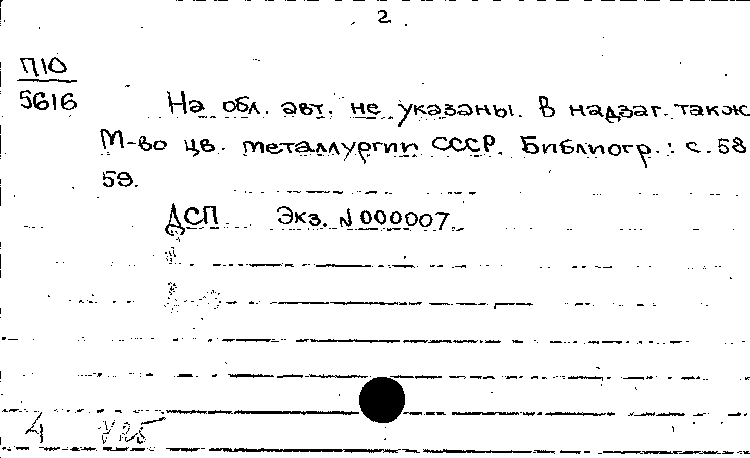 2
П10
5616
На обл. авт. не указаны. В надзаг. такж
М-во цв. металлургии СССР. Библиогр.: с. 58
59.
ДСП Экз. N 000007
4